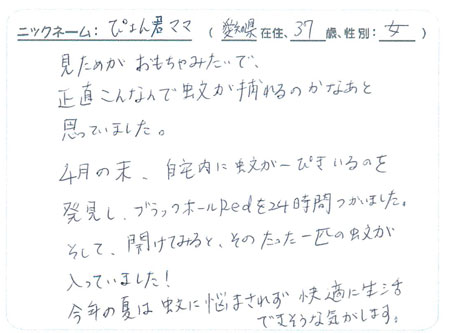 ニックネーム：ぴょん君ママ （愛知県在住、37歳、性別：女）
見ためが おもちゃみたいで、
正直こんなんで蚊が捕れるのかなあと
思っていました。
4月の末、自宅内に蚊が一ぴきいるのを
発見し、ブラックホールRedを24時間つかいました。
そして、開けてみると、そのたった一匹の蚊が
入っていました！
今年の夏は蚊に悩まされず 快適に生活
できそうな気がします。